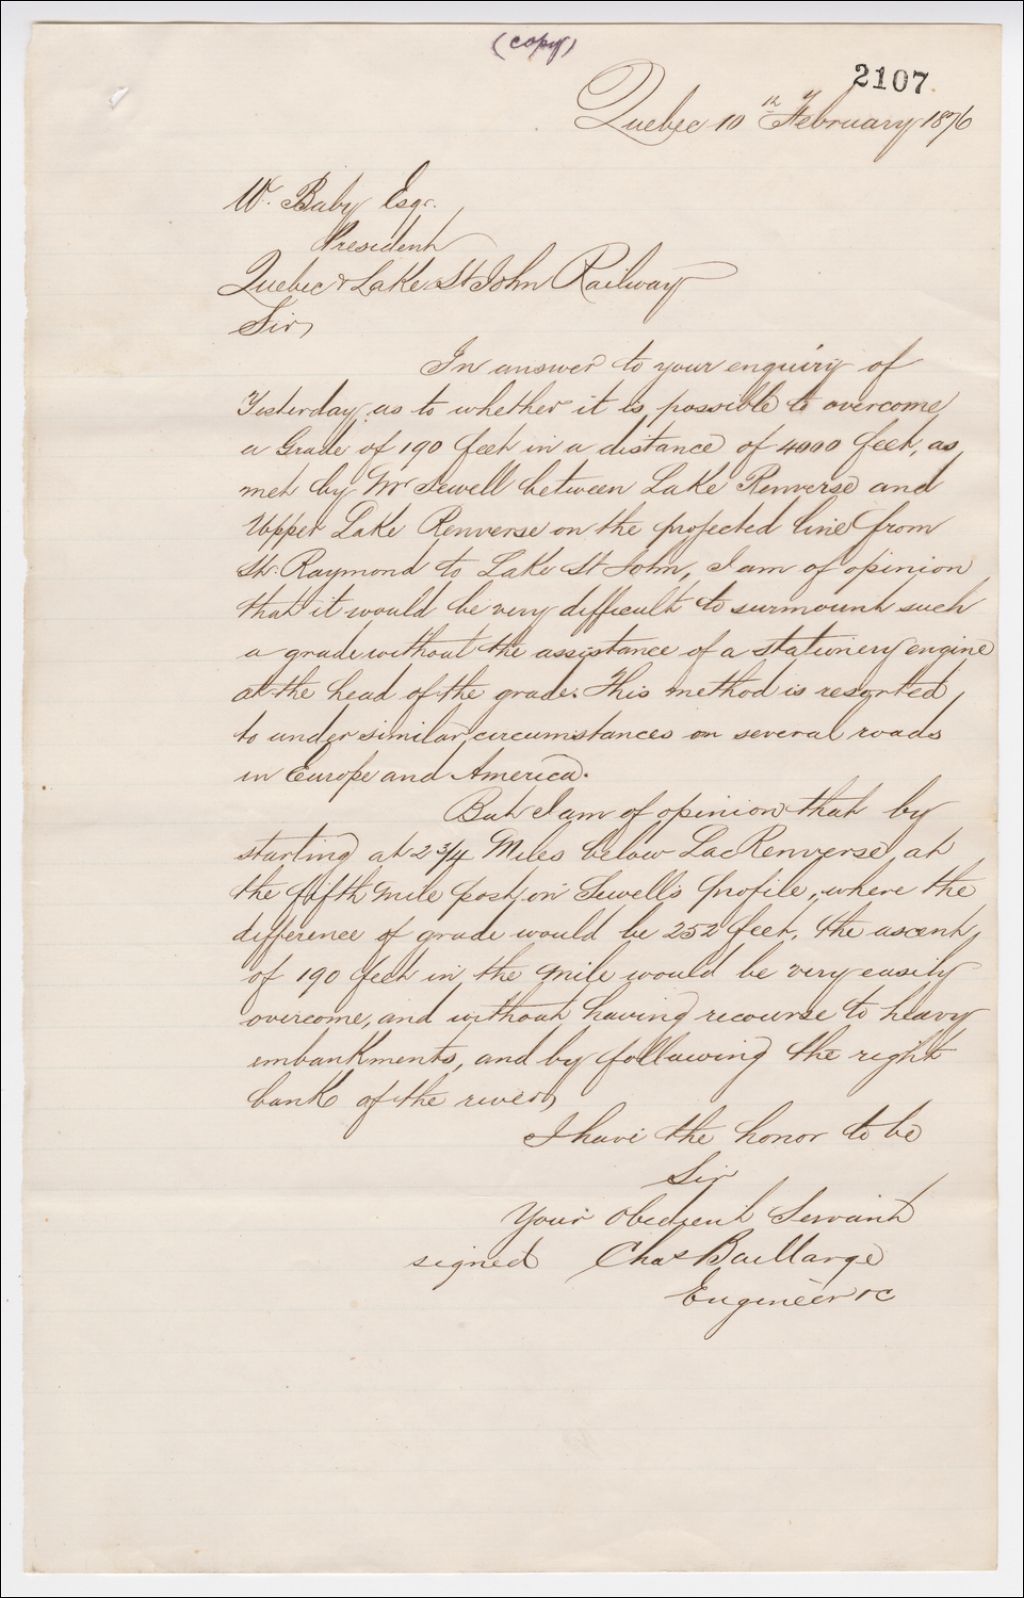 (copy)
2107
Quebec 10th February 1876
W. Baby Esqr.
President
Quebec & Lake St John Railway
Sir,
In answer to your enquiry of
Yesterday, as to whether it is possible to overcome
a Grade of 190 feet in a distance of 4000 feet, as
met by Mr Sewell between Lake Renverse and
Upper Lake Renverse on the projected line from
St. Raymond to Lake St John, I am of opinion
that it would be very difficult to surmount such
a grade without the assistance of a stationery engine
at the head of the grade. This method is resorted
to under similar circumstances on several roads
in Europe and America.
But I am of opinion that by
starting at 2 3/4 Miles below Lac Renverse, at
the fifth mile post on Sewell's profile, where the
difference of grade would be 252 feet, the ascent
of 190 feet in the mile would be very easily
overcome, and without having recourse to heavy
embankments, and by following the right
bank of the river,
I have the honor to be
Sir
Your Obedient Servant
signed Chas Baillarge
Engineer &c